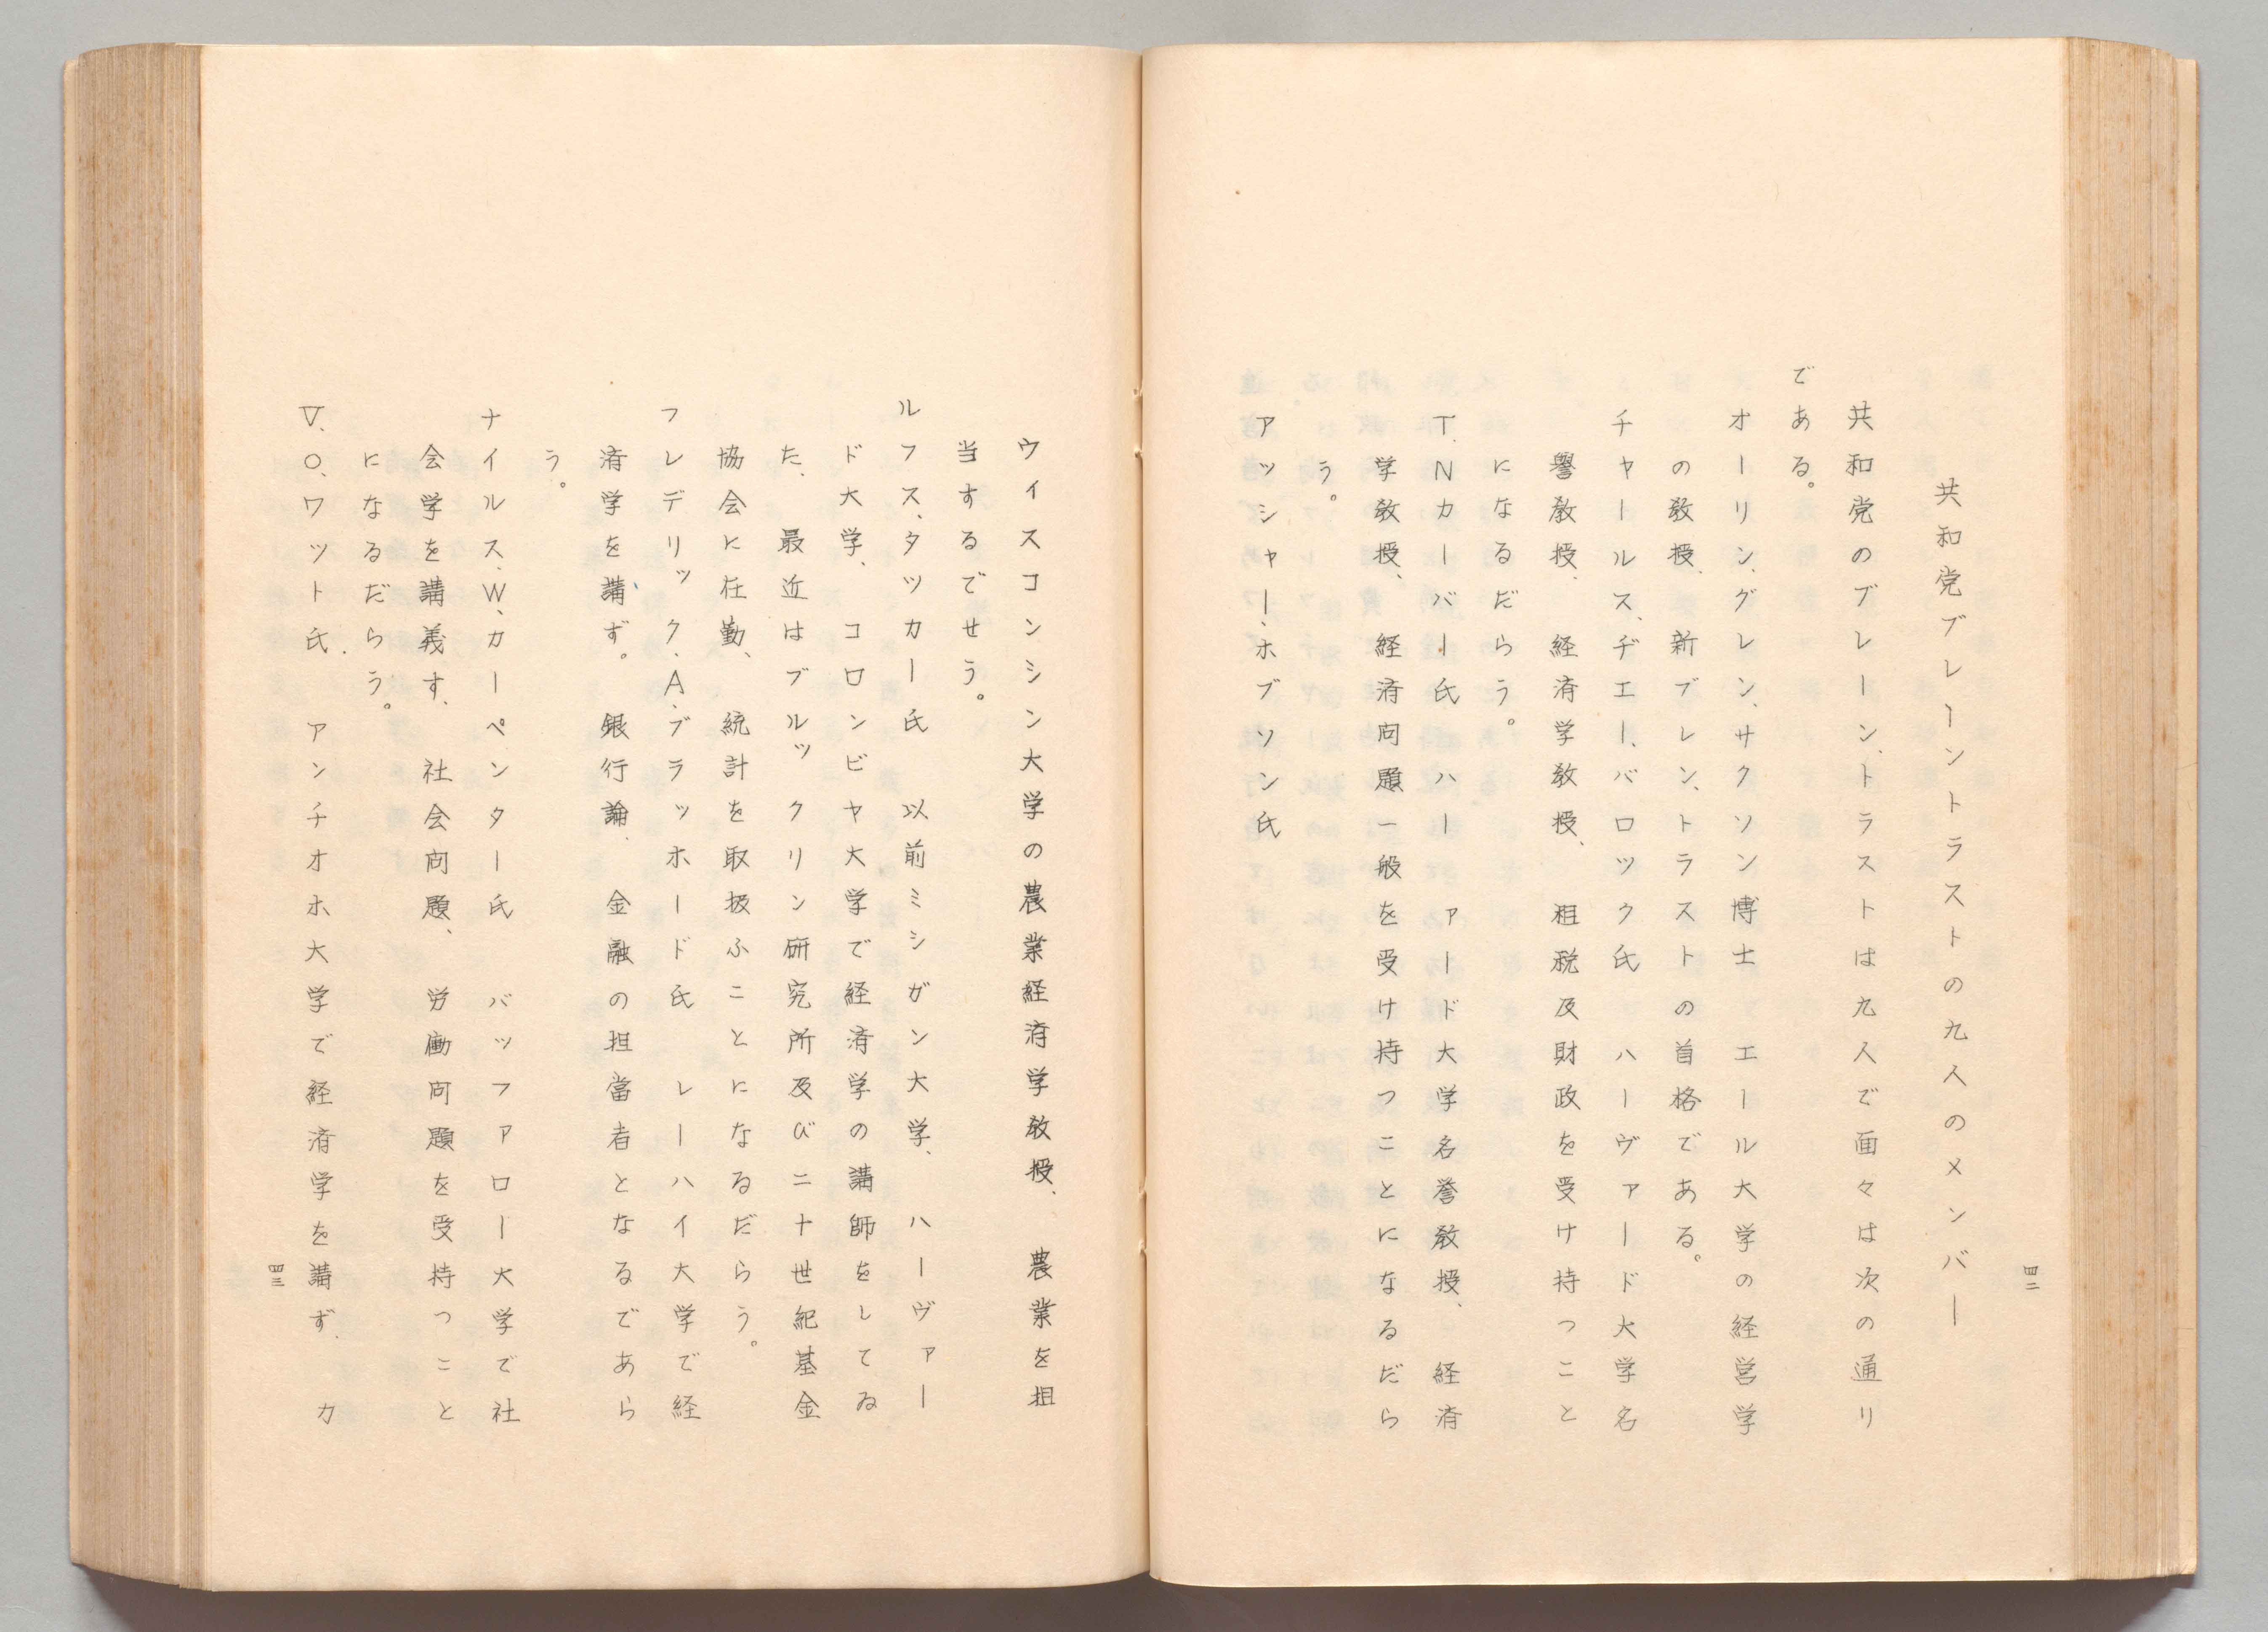 四二
共和党ブレーントラストの九人のメンバー
共和党のブレーン、トラストは九人で面々は次の通り
である。
オーリン、グレン、サクソン博士　エール大学の経営学
の教授、新ブレン、トラストの首格である。
チャールス、ヂエー、バロック氏　ハーヴァード大学名
譽教授、経済学教授、租税及財政を受け持つこと
になるだらう。
T.Nカーバー氏　ハーァード大学名誉教授、経済
学教授、経済問題一般を受け持つことになるだら
う。
アッシャー、ホブソン氏
ウィスコンシン大学の農業経済学教授、農業を担
当するでせう。
ルフス、タッカー氏　以前ミシガン大学、ハーヴァー
ド大学、コロンビヤ大学で経済学の講師をしてゐ
た、最近はブルックリン研究所及び二十世紀基金
協会に在勤、統計を取扱ふことになるだらう。
フレデリック、A、ブラッホード氏　レーハイ大学で経
済学を講ず。銀行論、金融の担當者となるであら
う。
ナイルス、W、カーペンター氏　バッファロー大学で社
会学を講義す、社会問題、労働問題を受持つこと
になるだらう。
V、O、ワット氏.　アンチオホ大学で経済学を講ず、カ
四三